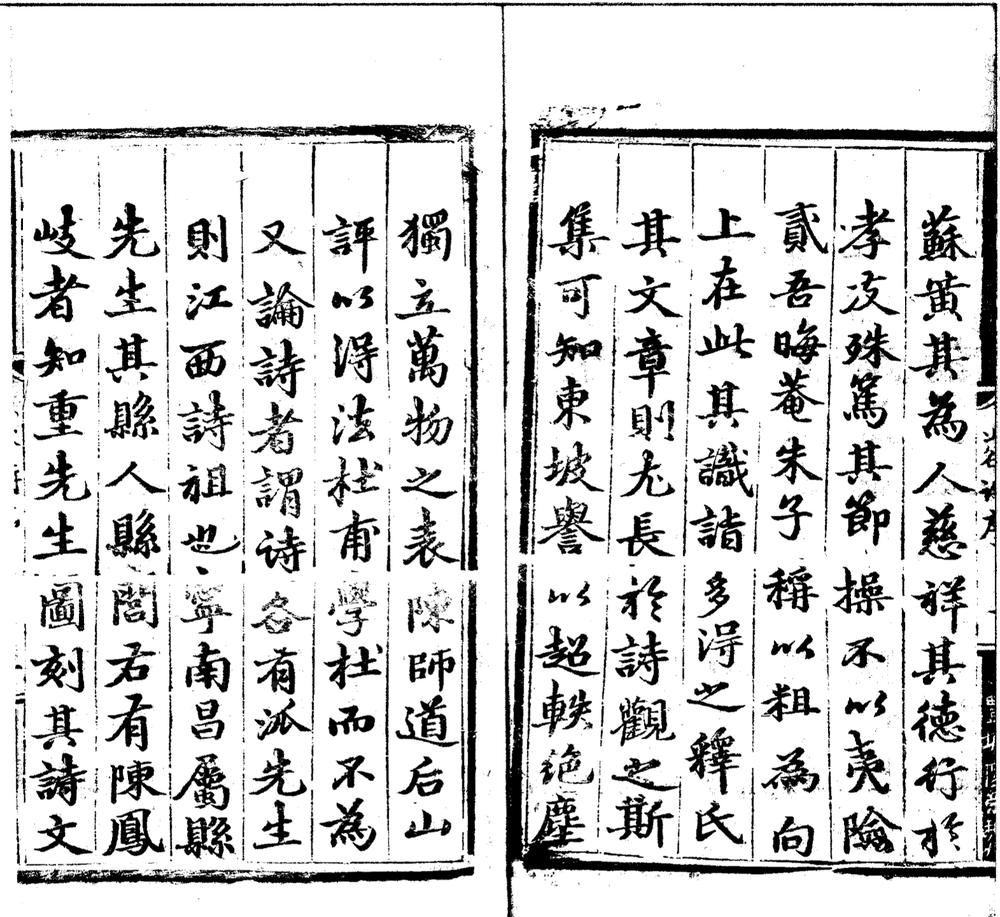 蘇黄其為人慈祥其德行於
孝友殊篤其節操不以夷險
貳吾晦菴朱子稱以粗為向
上在此其識詣多得之釋氏
其文章則尤長於詩觀之斯
集可知東坡譽以超軼絶塵
獨立萬物之表陳師道后山
評以得法杜甫學杜而不為
又論詩者謂诗各有派先生
則江西詩祖也寧南昌屬縣
先生其縣人縣閭右有陳鳳
岐者知重先生圖刻其詩文